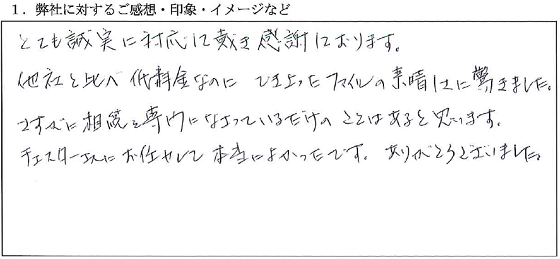 1. 弊社に対するご感想・印象・イメージなど
とても誠実に対応して戴き感謝しております。
他社と比べ低料金なのに でき上ったファイルの素晴しさに驚きました。
さすがに相続を専門になさっているだけのことはあると思います。
チェスターさんにお任せして本当によかったです。ありがとうございました。